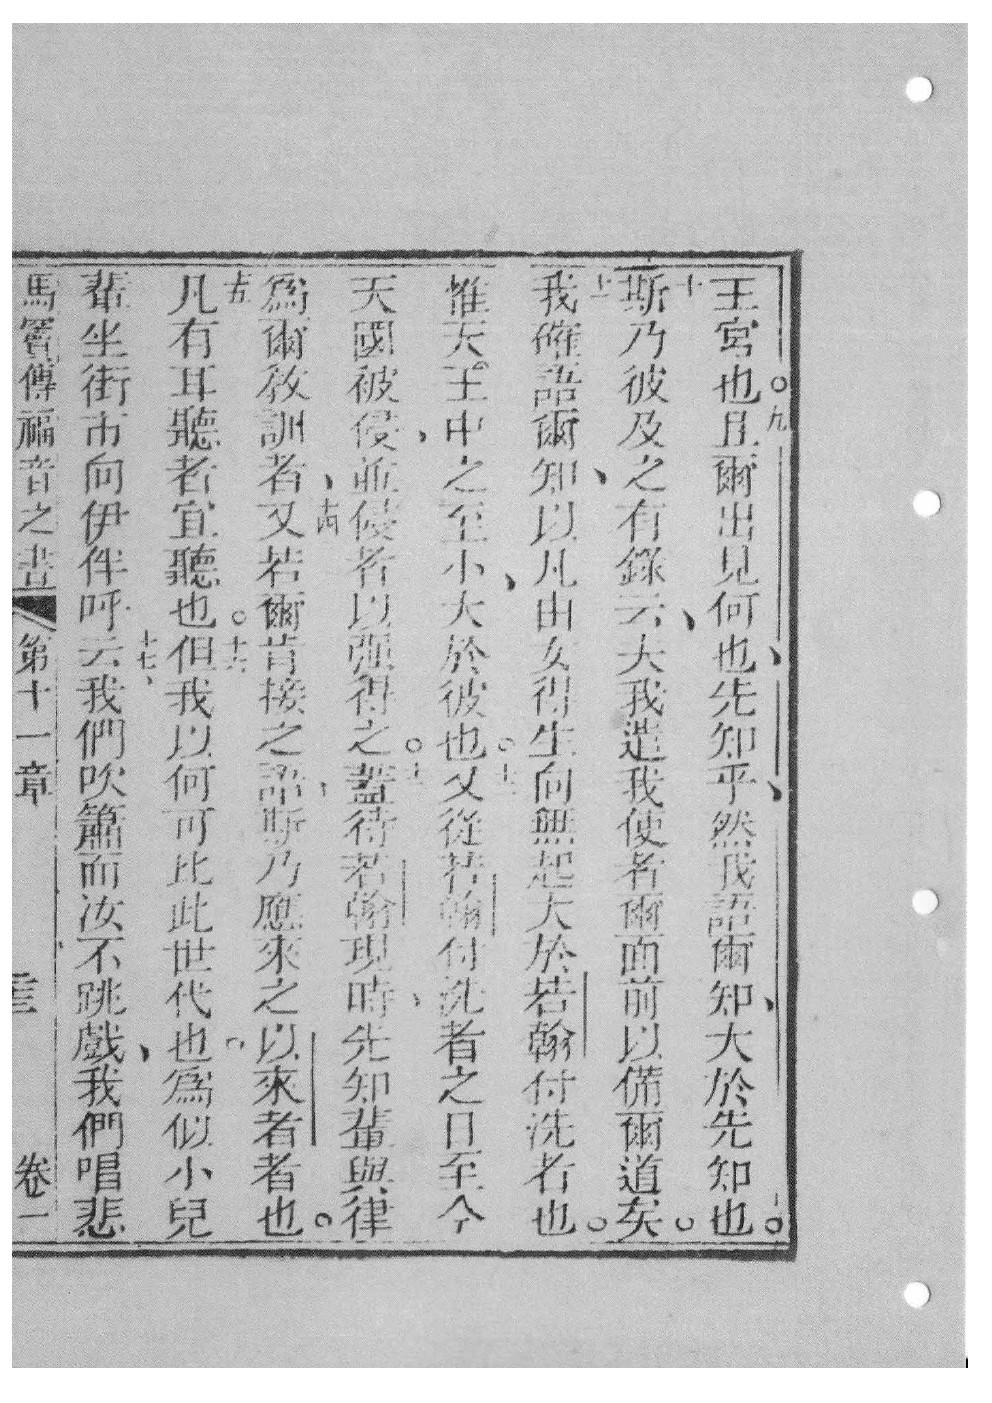 王宮也。九且爾出見何也、先知乎、然我語爾知、大於先知也。
十斯乃彼及之有錄云、大我遣我使者爾面前以備爾道矣。
十一我確語爾知、以凡由女得生向無起大於若翰付洗者也。
惟天王中之至小、大於彼也。十二又從若翰付洗者之日至今
天國被侵、並侵者以强得之。十三蓋待若翰現時、先知輩與律
爲爾教訓者、十四又若爾肯接之語、斯乃應來之以來者者也。
十五凡有耳聽者宜聽也。十六但我以何可比此世代也。爲似小兒
輩坐街市向伊伴呼云、十七我們吹簫而汝不跳戲、我們唱悲
馬竇傳福音之書 第十一章 卷一